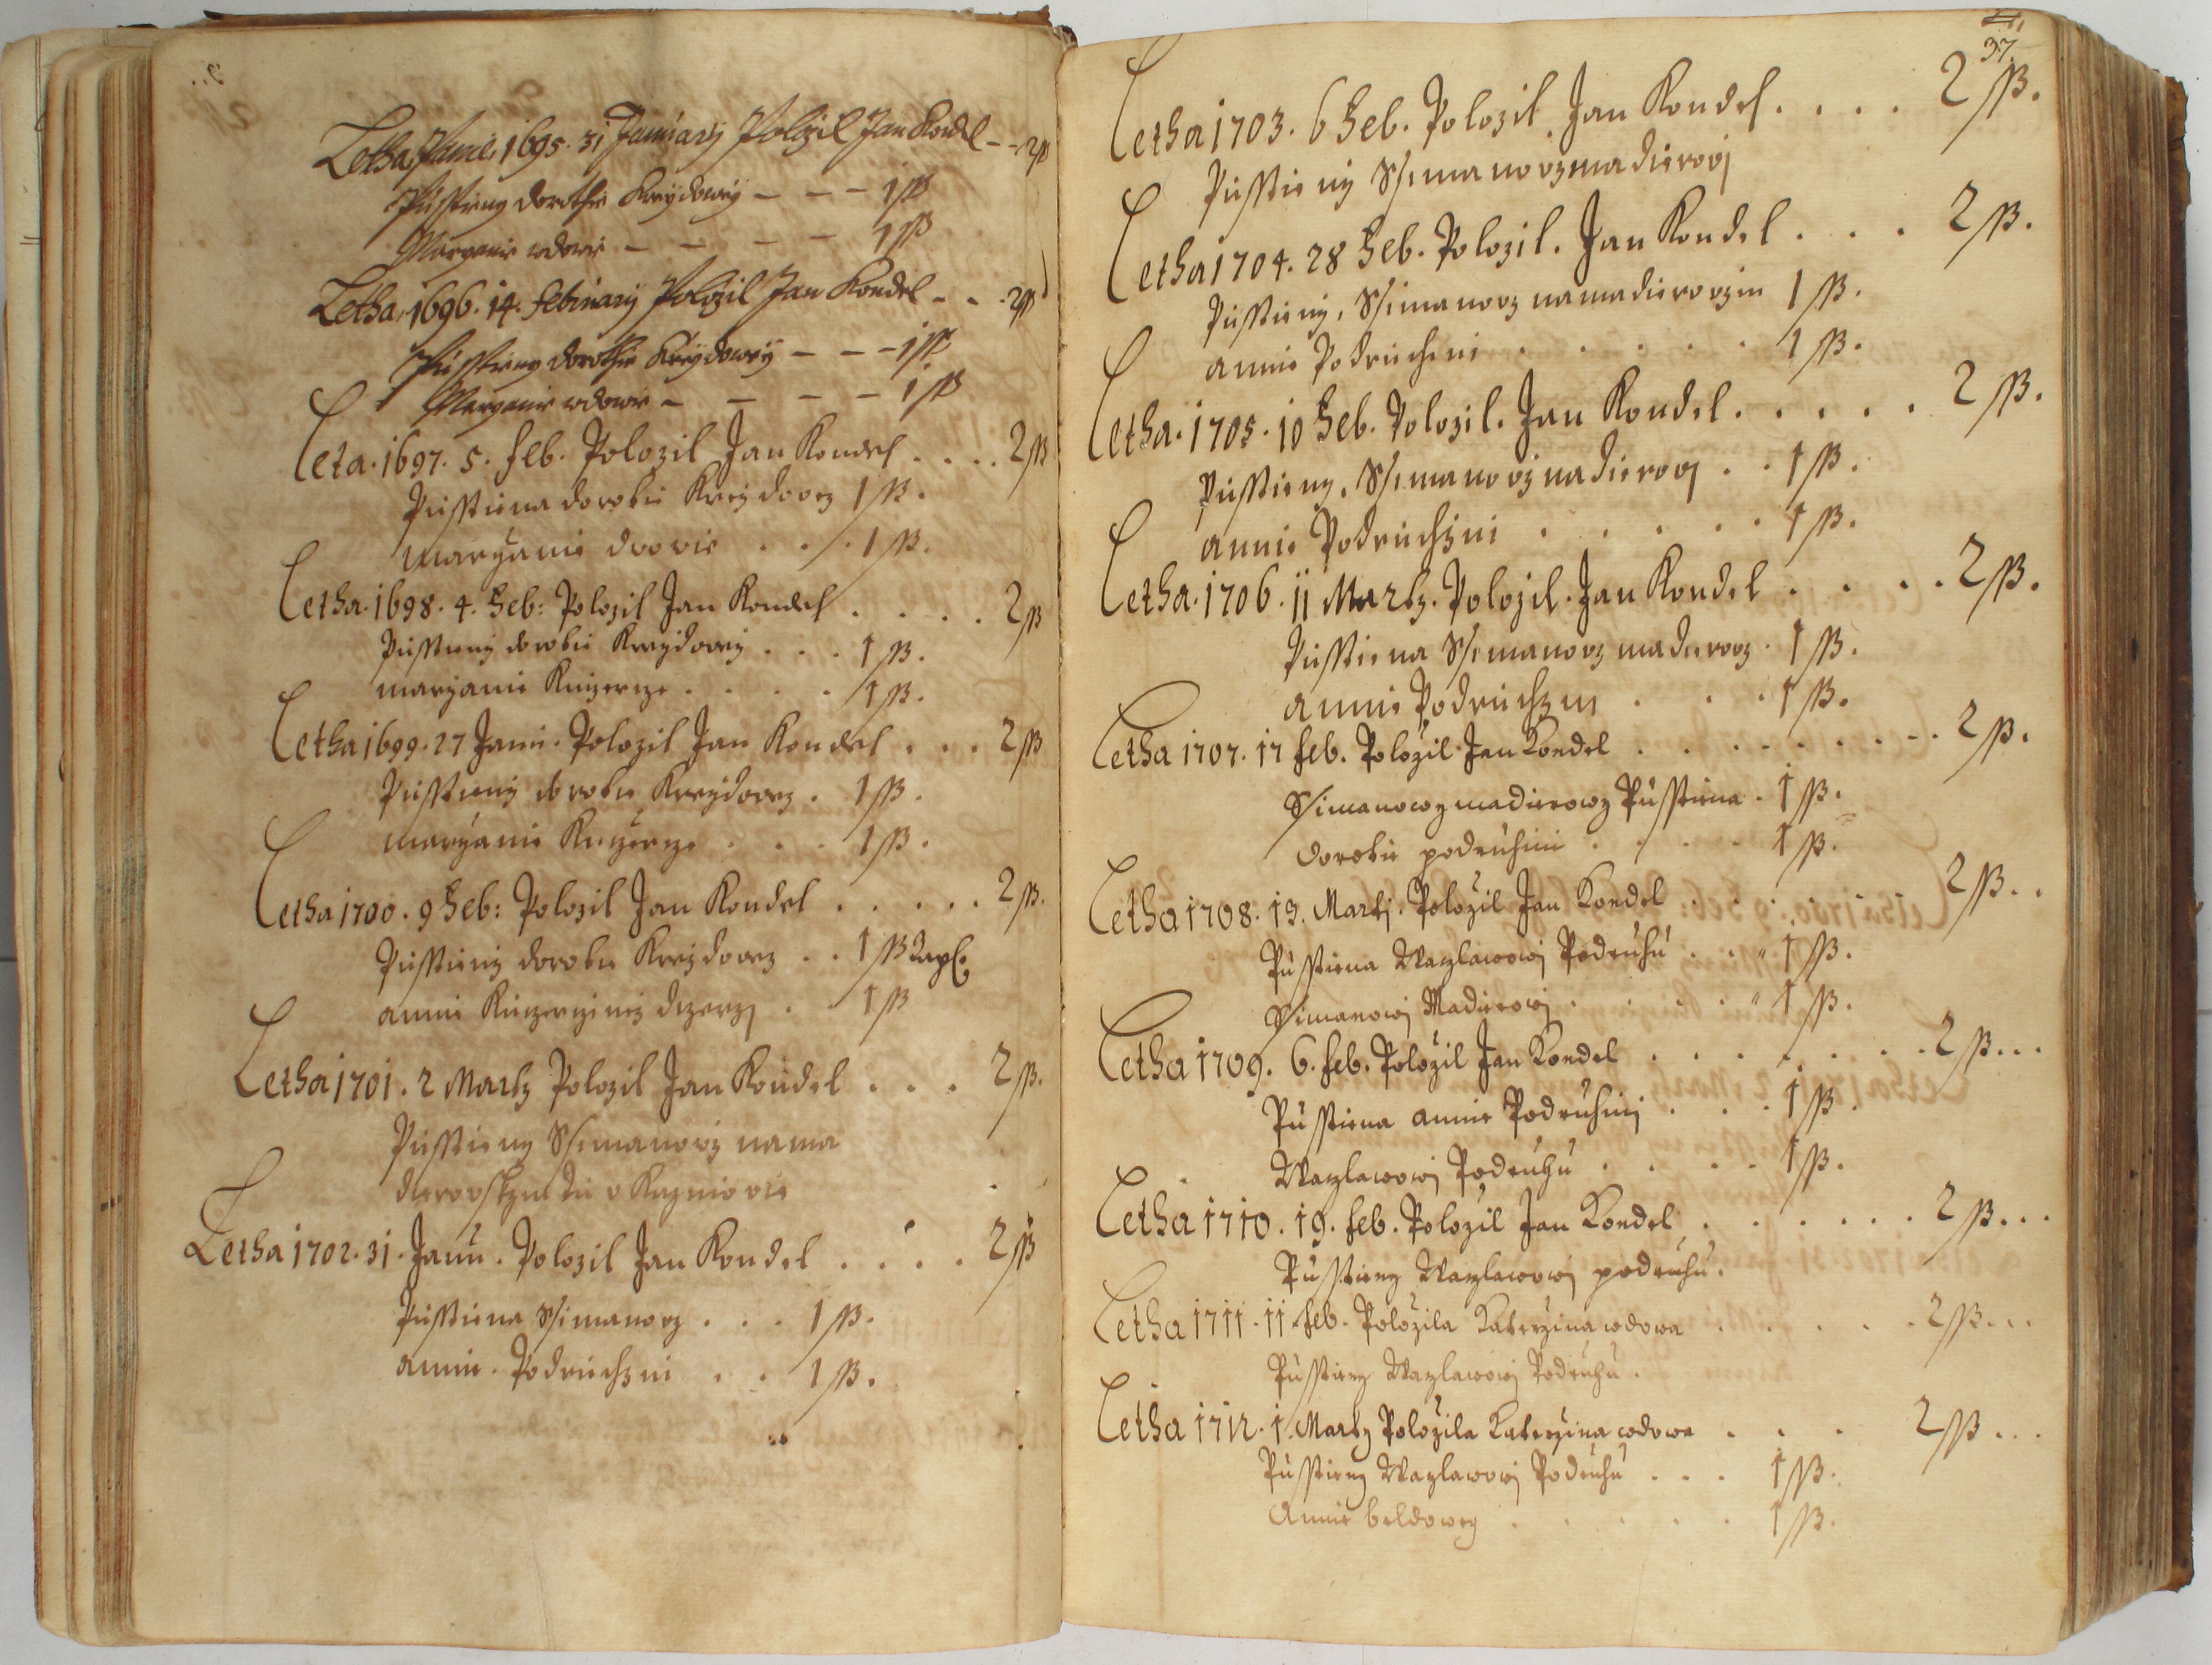 Letha Panie 1695. 31 January Položil Jan Kondel - - 2 ſß
Pusstieny dorothie Kreydowy - - - 1 ſß
Maryanie wdowie - - - - 1 ſß
Letha 1696. 14. february Položil Jan Kondel - - 2 ſß
Pusstieny dorothie Kreydowy - - - 1 ſß
Maryanie wdowie - - - - 1 ſß
Leta. 1697. 5. feb. Polozil Jan Kondel . . . . 2 ſß
Pusstiena dorotie Kreydowy 1 ſß.
maryanie dvovie . . . 1 ſß.
Letha. 1698. 4. Feb: Polozil Jan Kondel . . . . 2 ſß
Pusstieny dorotie Kreydowy . . . 1 ſß.
maryanie . . . . 1 ſß.
Letha 1699. 27 Janu. Polozil Jan Kondel . . . 2 ſß
Pusstieny dorotie Kreydowy . 1 ſß.
maryanie . . . 1 ſß.
Letha 1700. 9 Feb: Polozil Jan Kondel . . . . . 2 ſß.
Pusstieny dorotie Kreydowy . . 1 ſß
annie . 1 ſß
Letha 1701. 2 Marty Polozil Jan Kondel . . . 2 ſß.
Pusstieny Ssimanovy na ma
dierovskem
Letha 1702. 31. Janu. Polozil Jan Kondel . . . . 2 ſß
Pusstiena Ssimanovy . . . 1 ſß.
annie. Podruchyni . . 1 ſß.
37.
Letha 1703. 6 Feb. Polozil Jan Kondel. . . . 2 ſß.
Pusstieny Ssimanovy madierovy
Letha 1704. 28 Feb. Polozil. Jan Kondel . . . 2 ſß.
Pusstieny, Ssimanovy na madierovzin 1 ſß.
annie Podruchini . . . . . 1 ſß.
Letha. 1705. 10 Feb. Polozil. Jan Kondel. . . . . 2 ſß.
Pusstieny, Ssimanovy nadierovy . . 1 ſß.
annie Podruchyni . . . . . 1 ſß.
Letha. 1706. 11 Marty. Polozil. Jan Kondel . . . . 2 ſß.
Pusstiena Ssimanovy madierovy . 1 ſß.
annie Podruchyni . . . 1 ſß.
Letha 1707. 17 feb. Položil Jan Kondel . . . . . . . . 2 ſß.
Ssimanowy madierowy Pusstiena . 1 ſß.
dorotie podruhini . . . . 1 ſß.
Letha 1708. 13. Martj. Položil Jan Kondel . . . . . 2 ſß. .
Pusstiena Waczlawowj Podruhu . . . 1 ſß.
Ssimanowj Madierowj . . . . 1 ſß.
Letha 1709. 6. feb. Položil Jan Kondel . . . . . . . 2 ſß. . .
Pusstiena annie Podruhinj . . . 1 ſß.
Waczlawowj Podruhu . . . . 1 ſß.
Letha 1710. 19. feb. Položil Jan Kondel . . . . . . 2 ſß. . .
Pusstieny Waczlawowj podruhu.
Letha 1711. 11. feb. Položila Kateržina wdowa . . . . . 2 ſß. . .
Pusstieny Waczlawowj Podruhu.
Letha 1712. 1. Marty Položila Kateržina wdowa . . . 2 ſß . . .
Pusstieny Waczlawowj Podruhu . . . 1 ſß.
Annie beldowey . . . . . 1 ſß.